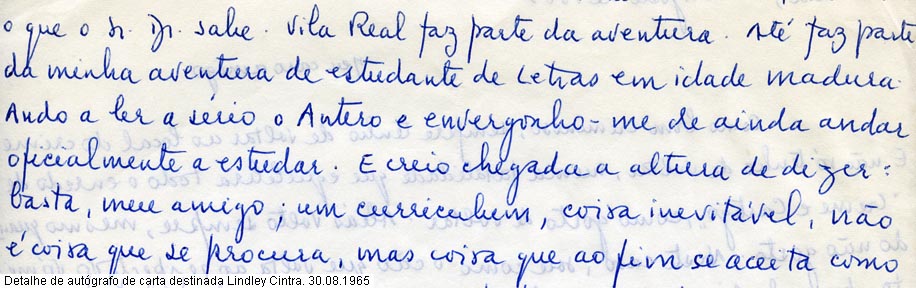 o que o Sr. Dr. sabe. Vila Real faz parte da aventura. Até faz parte
da minha aventura de estudante de Letras em idade madura.
Ando a ler a sério o Antero e envergonho-me de ainda andar
oficialmente a estudar. E creio chegada a altura de dizer:
basta, meu amigo; um curriculum, coisa inevitável, não
é coisa que se procura, mas coisa que ao fim se aceita como
Detalhe de autógrafo de carta destinada Lindley Cintra. 30.08.1965